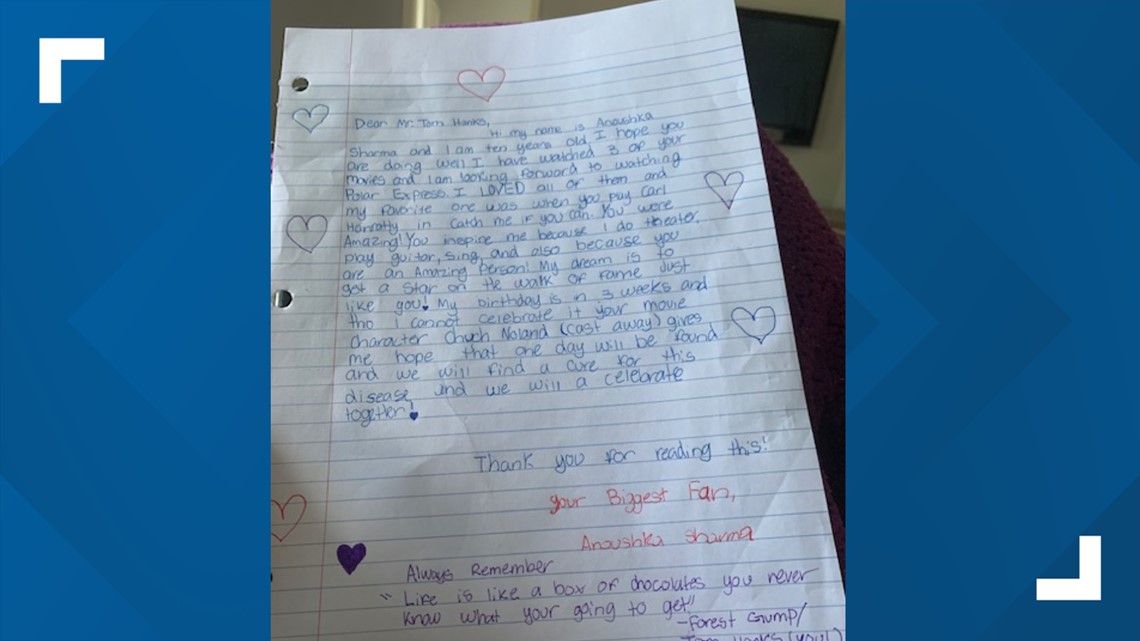 Dear Mr. Tom Hanks,
Hi my name is Anoushka
Sharma and I am ten years old. I hope you
are doing well I have watched 3 of your
movies and I am looking forward to watching
Polar Express. I LOVED all of them and
my favorite one was when you play Carl
Hanratty in Catch me if you can. You were
Amazing! You inspire me because I do theater,
play guitar, sing, and also because you
are an Amazing Person! My dream is to
get a Star on the walk of Fame Just
like you! My birthday is in 3 weeks and
tho I cannot celebrate it your movie
character Chuch Noland (cast away) gives
me hope that one day will be found
and we will find a cure for this
disease and we will a celebrate
together!
Thank you for reading this!
your Biggest Fan,
Anoushka Sharma
Always Remember
"Life is like a box of chocolates you never
know what your going to get"
-Forest Gump/
Tom Hanks (you!)